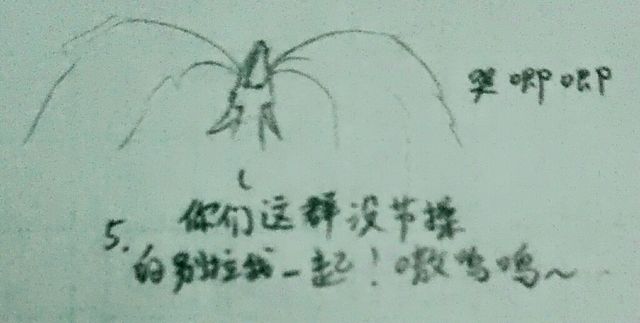 哭唧唧
5. 你们这群没节操
的别拉我一起！嗷呜呜～